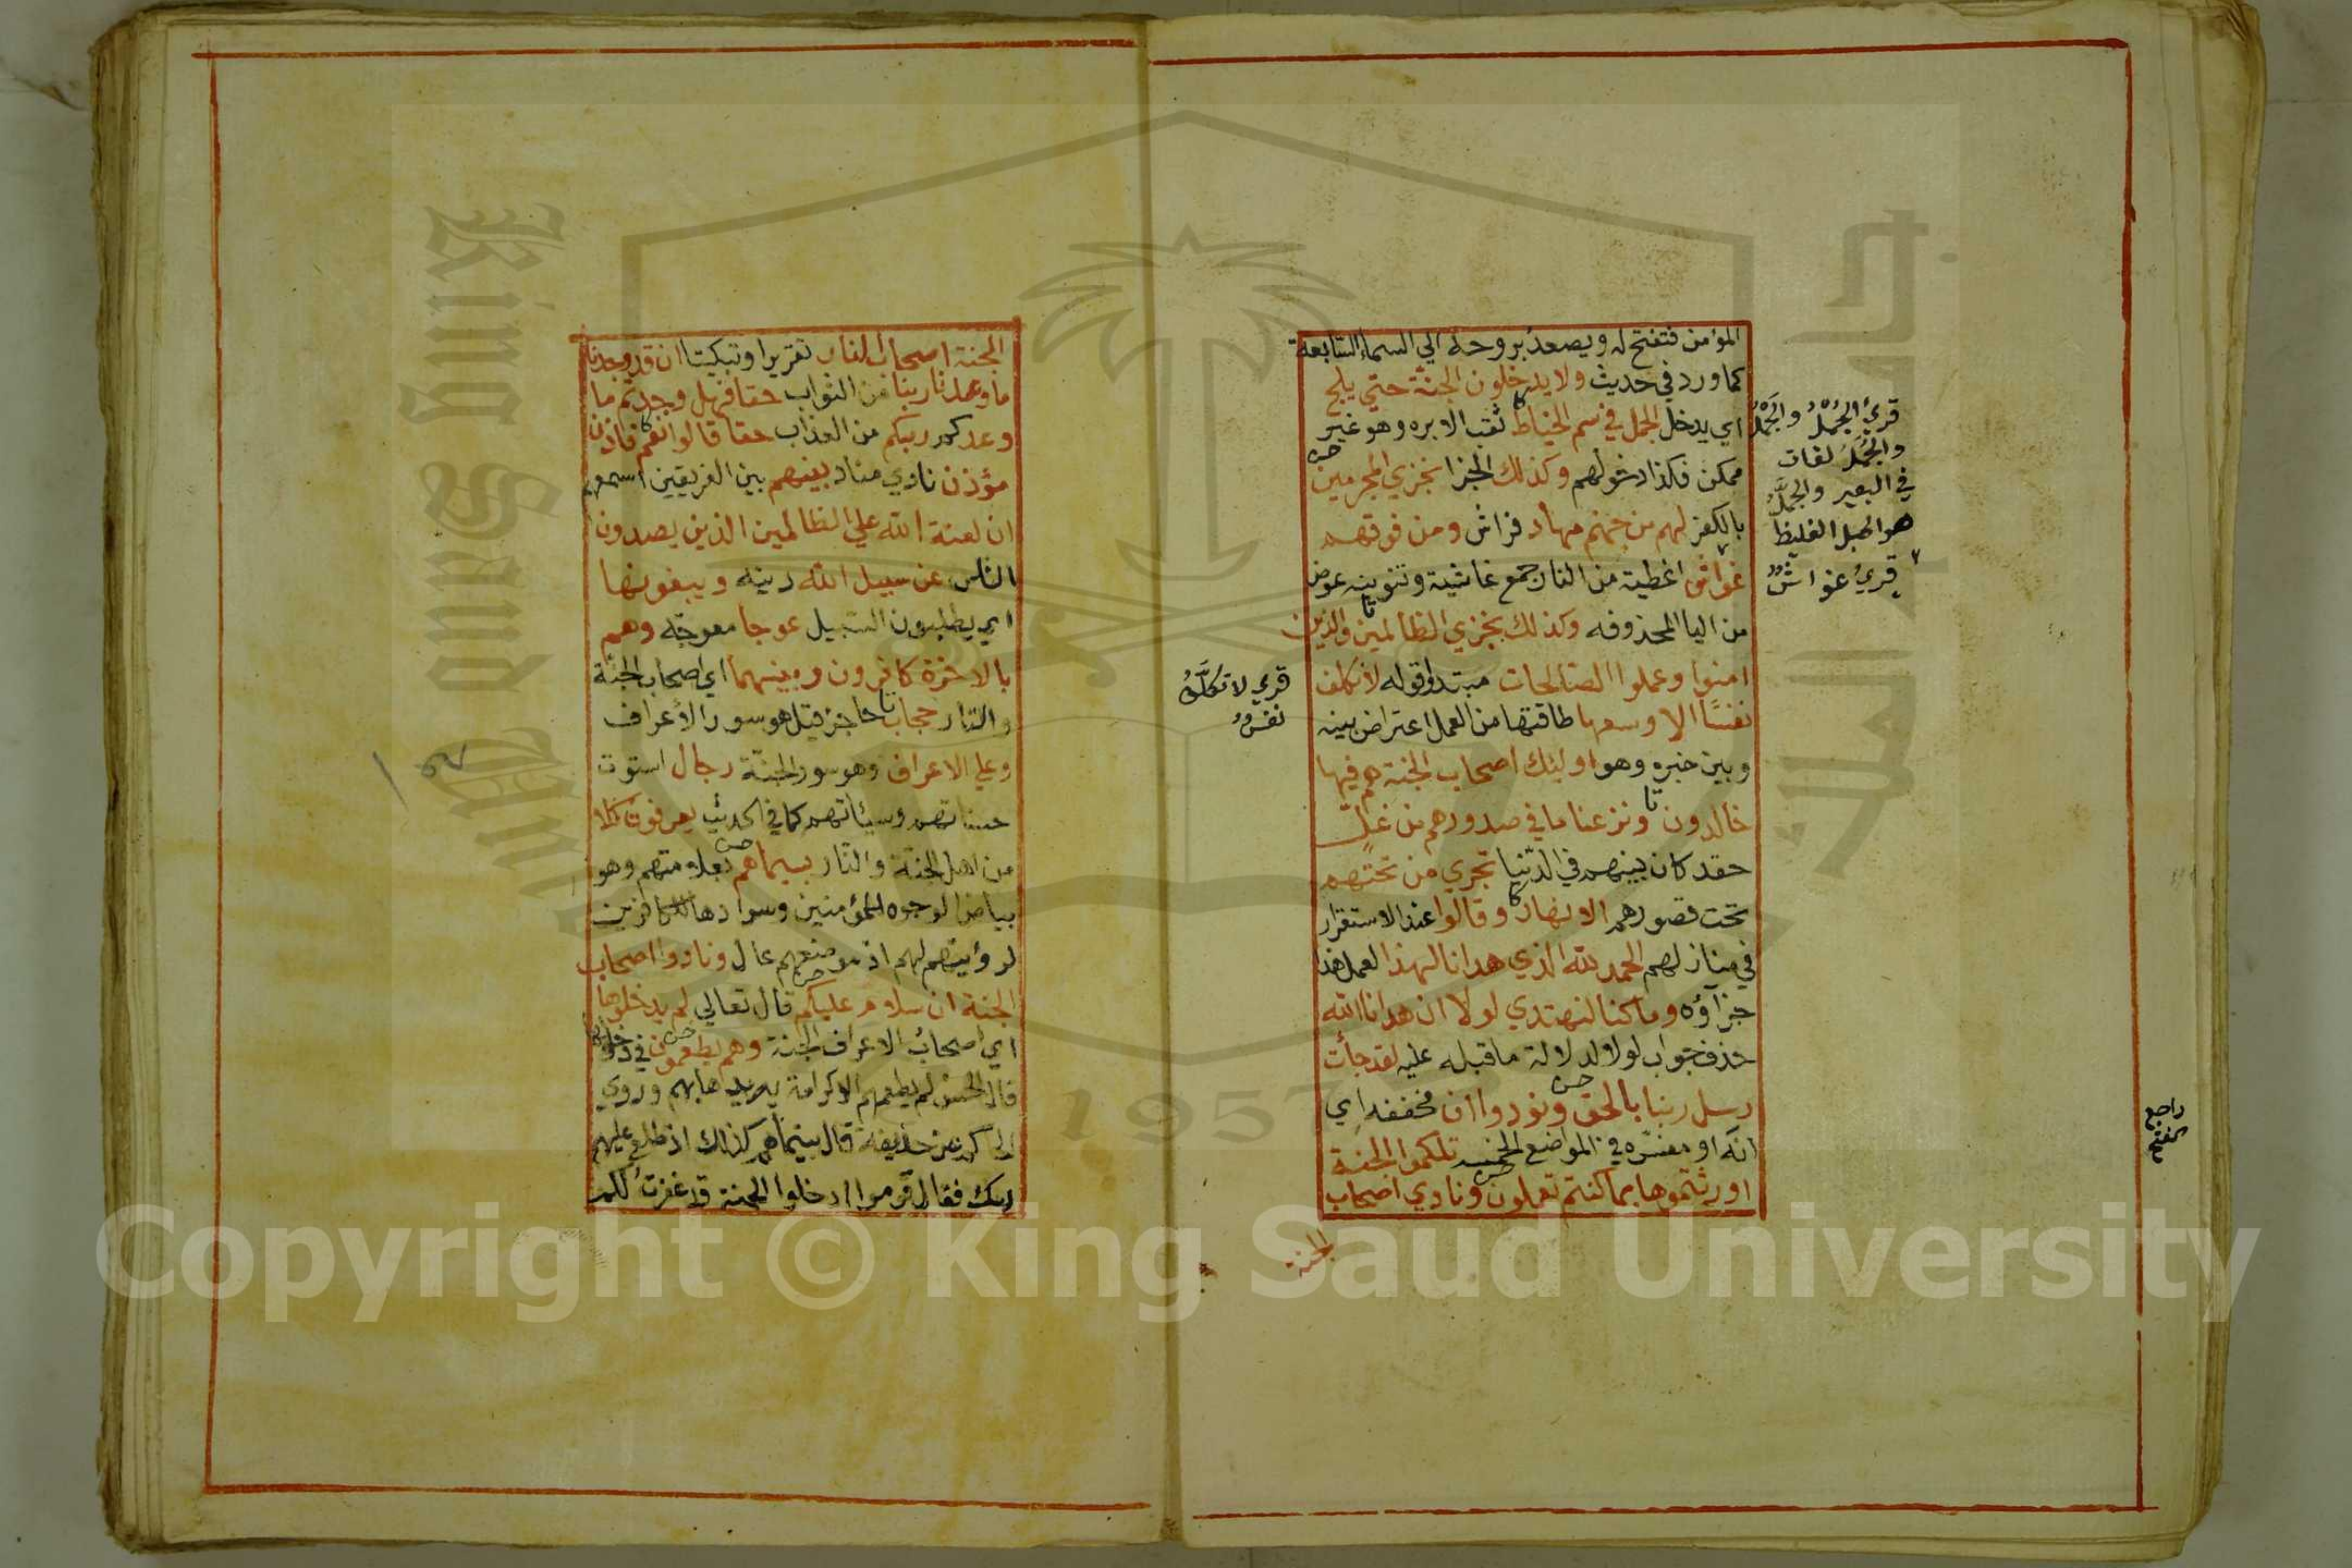 المؤمن فتفتح له ويصعد بروحه الي السماء السابعة
كما ورد في حديث ولا يدخلون الجنة حتي يلج
اي يدخل الجمل في سم الخياط ثقب الابره وهو غير
ممكن فكذا دخولهم وكذلك الجزا نجزي المجرمين
بالكفر لهم من جهنم مهاد فراش ومن فوقهم
غواش اغطية من النار جمع غاشية وتنوينه عوض
من اليا المحذوفه وكذلك نجزي الظالمين والذين
امنوا وعملوا الصالحات مبتدا وقوله لا نكلف
نفسًا الا وسعها طاقتها من العمل اعتراض بينه
وبين خبره وهو اوليك اصحاب الجنة هم فيها
خالدون ونزعنا ما في صدورهم من غلّ
حقد كان بينهم في الدّنيا تجري من تحتهم
تحت قصورهم الانهار وقالوا عند الاستقرار
في منازلهم الحمد لله الذي هدانا لهذا العمل هذا
جزآؤه وما كنا لنهتدي لولا ان هدانا الله
حذف جواب لولا لدلالة ما قبله عليه لقد جأت
رسل ربنا بالحق ونودوا ان مخففه اي
انه او مفسّره في المواضع الخمسه تلكموا الجنة
اورثتموها بما كنتم تعملون ونادي اصحاب
الجنة
قريُ الجُمْلُ والجَمْلُ
والجُمُلُ لغات
في البعير والجُمَّلُ
هو الحبل الغليظ
قريُ غواشٌ
قري لا تُكلَّفُ
نفسٌ
راجع
الجنة اصحاب النار تقريرا وتبكيتا ان قد وجدنا
ما وعدنا ربنا من الثواب حقا فهل وجدتم ما
وعدكم ربكم من العذاب حقا قالوا نعم فاذن
مؤذن نادي مناد بينهم بين الفريقين اسمعهم
ان لعنة الله علي الظالمين الذين يصدون
الناس عن سبيل الله دينه ويبغونها
اي يطلبون السّبيل عوجا معوجّه وهم
بالاخرة كافرون وبينهما اي اصحاب الجنّة
والنار حجاب حاجز قيل هو سور الأعراف
وعلي الاعراف وهو سور الجنّة رجال استوت
حسناتهم وسيئاتهم كما في الحديث يعرفون كلا
من اهل الجنّة والنّار بسيماهم بعلامتهم وهو
بياض الوجوه للمؤمنين وسوادها للكافرين
لرؤيتهم لهم اذ موضعهم عال ونادوا اصحاب
الجنة ان سلام عليكم قال تعالي لم يدخلوها
اي اصحاب الاعراف الجنة وهم يطمعون في دخولها
قال الحسن لم يطمعهم الا لكرامة يريدها بهم وروي
الحاكم عن حذيفة قال بينما هم كذلك اذ طلع عليهم
ربك فقال قوموا ادخلوا الجنة قد غفرتُ لكم
Copyright © King Saud University
King Saud
1957